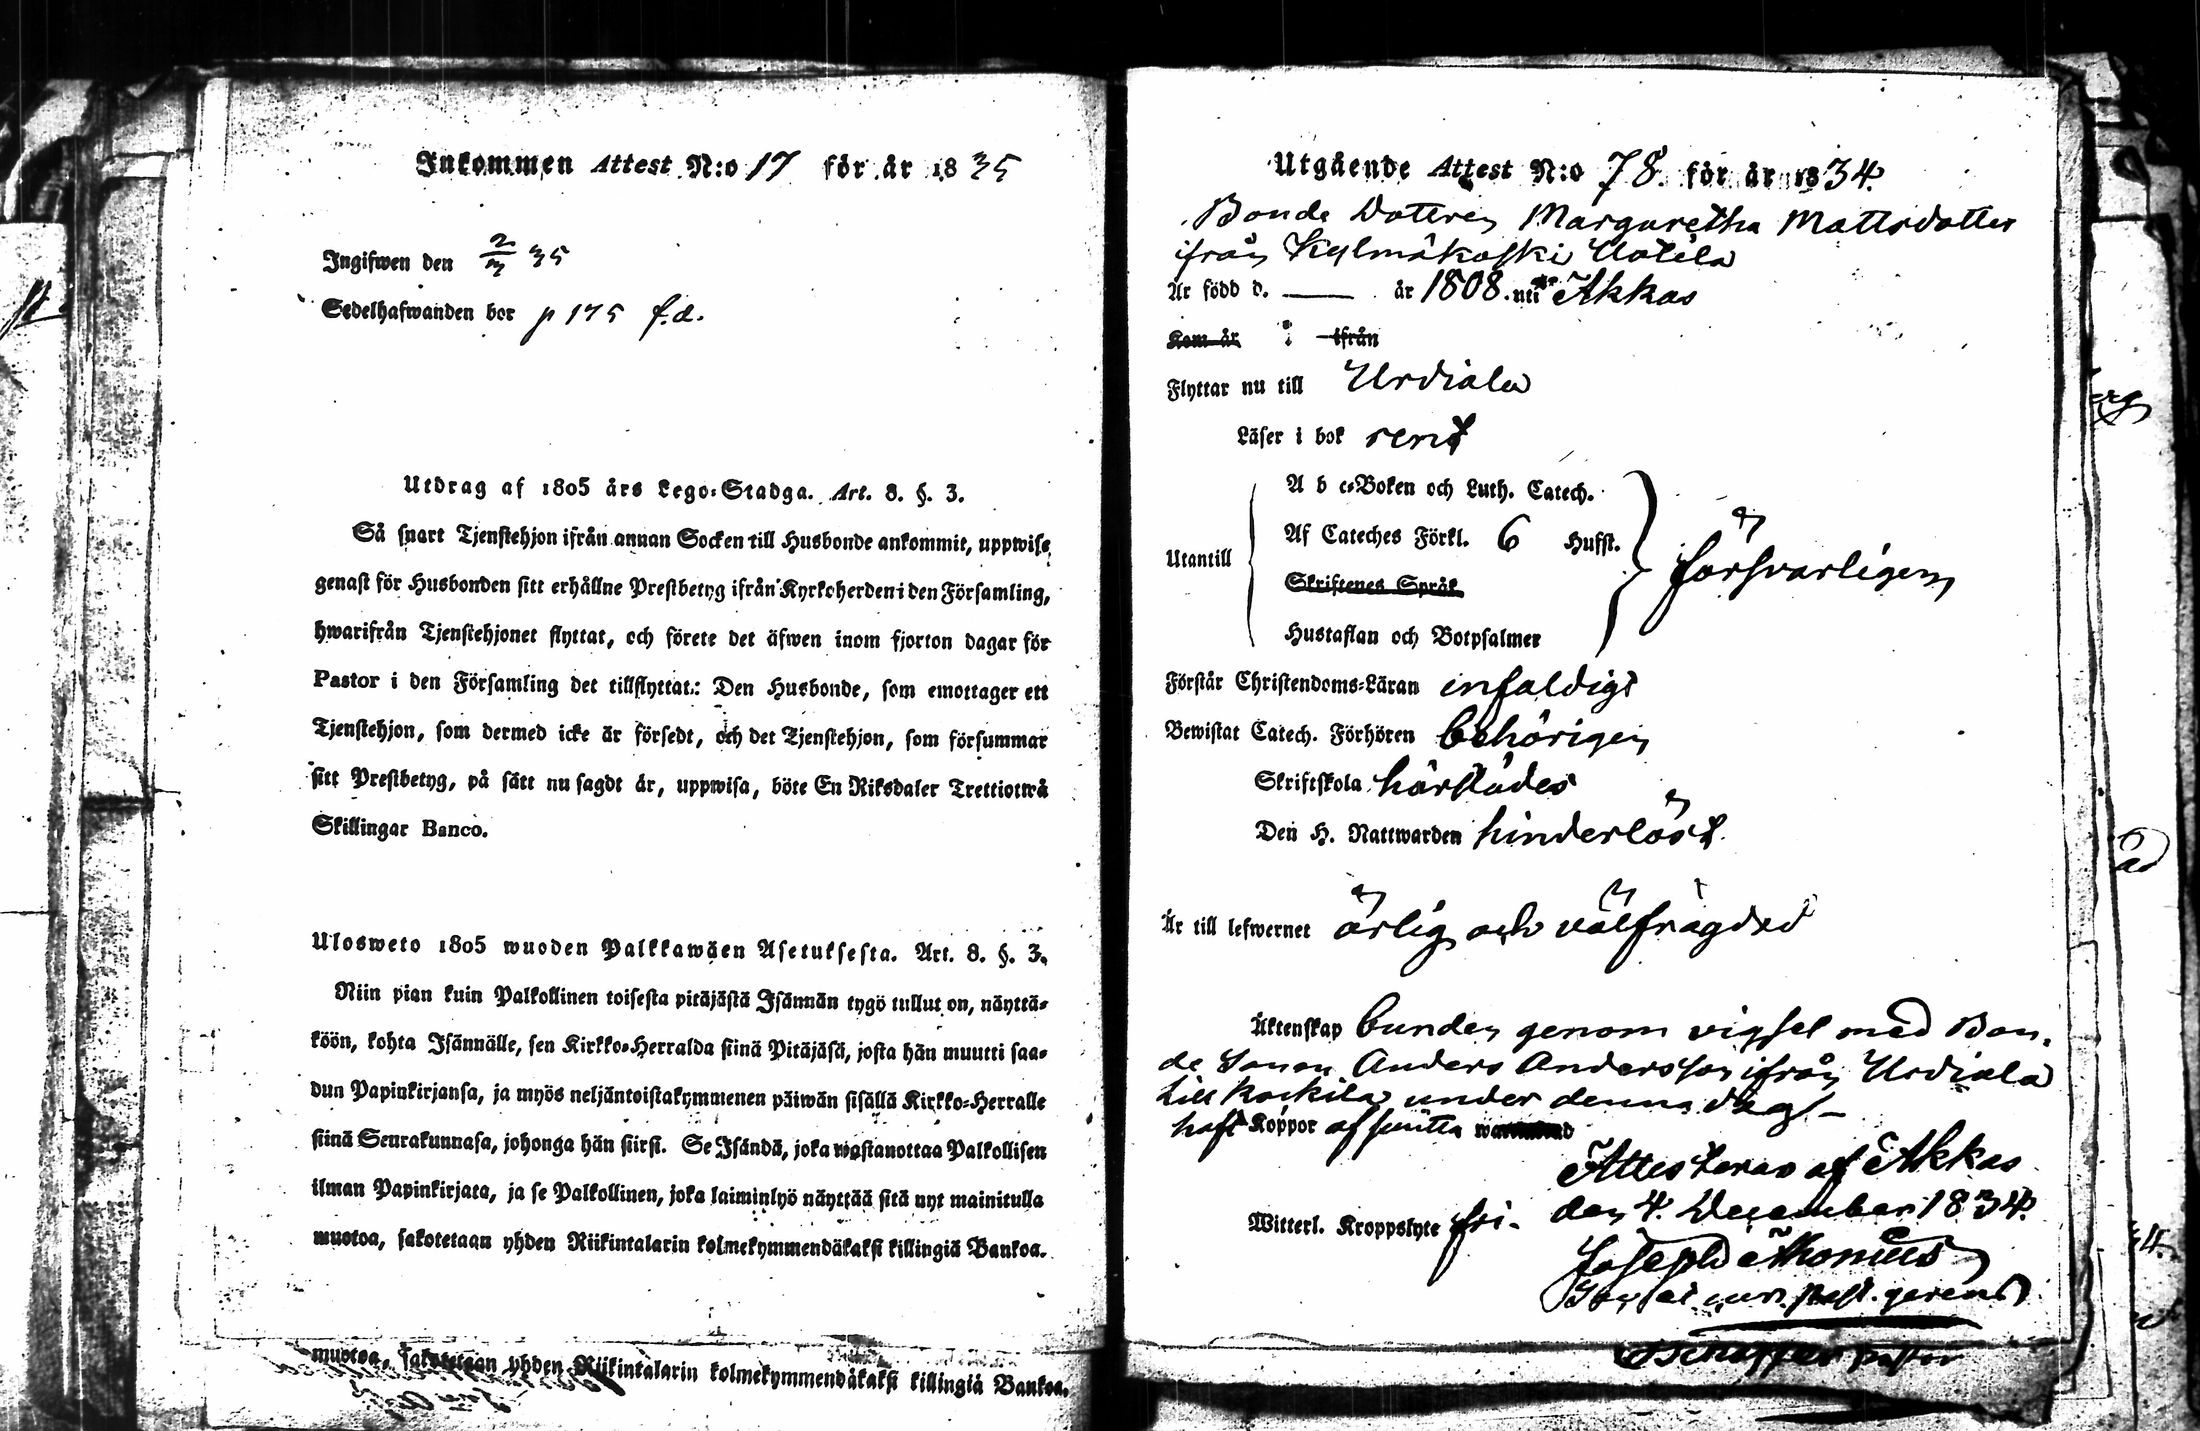 Inkommen Attest N:o 17 för år 1835
Ingifwen den 2/3 35
Sedelhafwanden bor p 175 f.d.
Utdrag af 1805 års Lego-Stadga. Art. 8. §. 3.
Så snart Tjenstehjon ifrån annan Socken till Husbonde ankommit, uppwise
genast för Husbonden sitt erhållne Prestbetyg ifrån Kyrkoherden i den Församling,
hwarifrån Tjenstehjonet flyttat, och förete det äfwen inom fjorton dagar för
Pastor i den Församling det tillflyttat.: Den Husbonde, som emottager ett
Tjenstehjon, som dermed icke är försedt, och det Tjenstehjon, som försummar
sitt Prestbetyg, på sätt nu sagdt är, uppwisa, böte En Riksdaler Trettiotwå
Skillingar Banco.
Ulosweto 1805 wuoden Palkkawäen Asetuksesta. Art. 8. §. 3.
Niin pian kuin Palkollinen toisesta pitäjästä Isännän tygö tullut on, näyttä-
köön, kohta Isännälle, sen Kirkko-Herralda siinä Pitäjäsä, josta hän muutti saa-
dun Papinkirjansa, ja myös neljäntoistakymmenen päiwän sisällä Kirkko-Herralle
siinä Seurakunnasa, johonga hän siirsi. Se Isändä, joka wastanottaa Palkollisen
ilman Papinkirjata, ja se Palkollinen, joka laiminlyö näyttää sitä nyt mainitulla
muotoa, sakotetaan yhden Riikintalarin kolmekymmendäkaksi killingiä Bankoa.
muotoa, sakotetaan yhden Riikintalarin kolmekymmendäkaksi killingiä Bankoa.
Utgående Attest N:o 78. för år 1834.
Bonde Dotteren Margaretha Mattsdotter
ifrån Kylmäkoski Uotila
Är född d. — år 1808. uti Akkas
Kom år i ifrån
Flyttar nu till Urdiala
Läser i bok rent
A b c-Boken och Luth. Catech.
Af Cateches Förkl. 6 Hufst.
Utantill försvarligen
Skriftenes Språk
Hustaflan och Botpsalmer
Förstår Christendoms-Läran enfaldigt
Bewistat Catech. Förhören behörigen
Skriftskola härstädes
Den H. Nattwarden hinderlöst
Är till lefwernet ärlig och välfrägdad
Äktenskap bunden genom vigsel med Bon-
de Sonen Anders Andersson ifrån Urdiala
under denna dag
haft Koppor
Attesteras af Akkas
den 4. December 1834.
Witterl. Kroppslyte fri.
Joseph
past. gerens
pastor